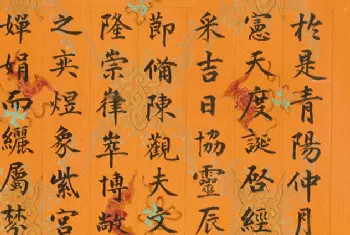 於是青陽仲月
憲天度誕啓經
采吉日協靈辰
節備陳觀夫文
隆崇嵂崒博敞
之奕煜象紫宮
嬋娟而纚屬棼